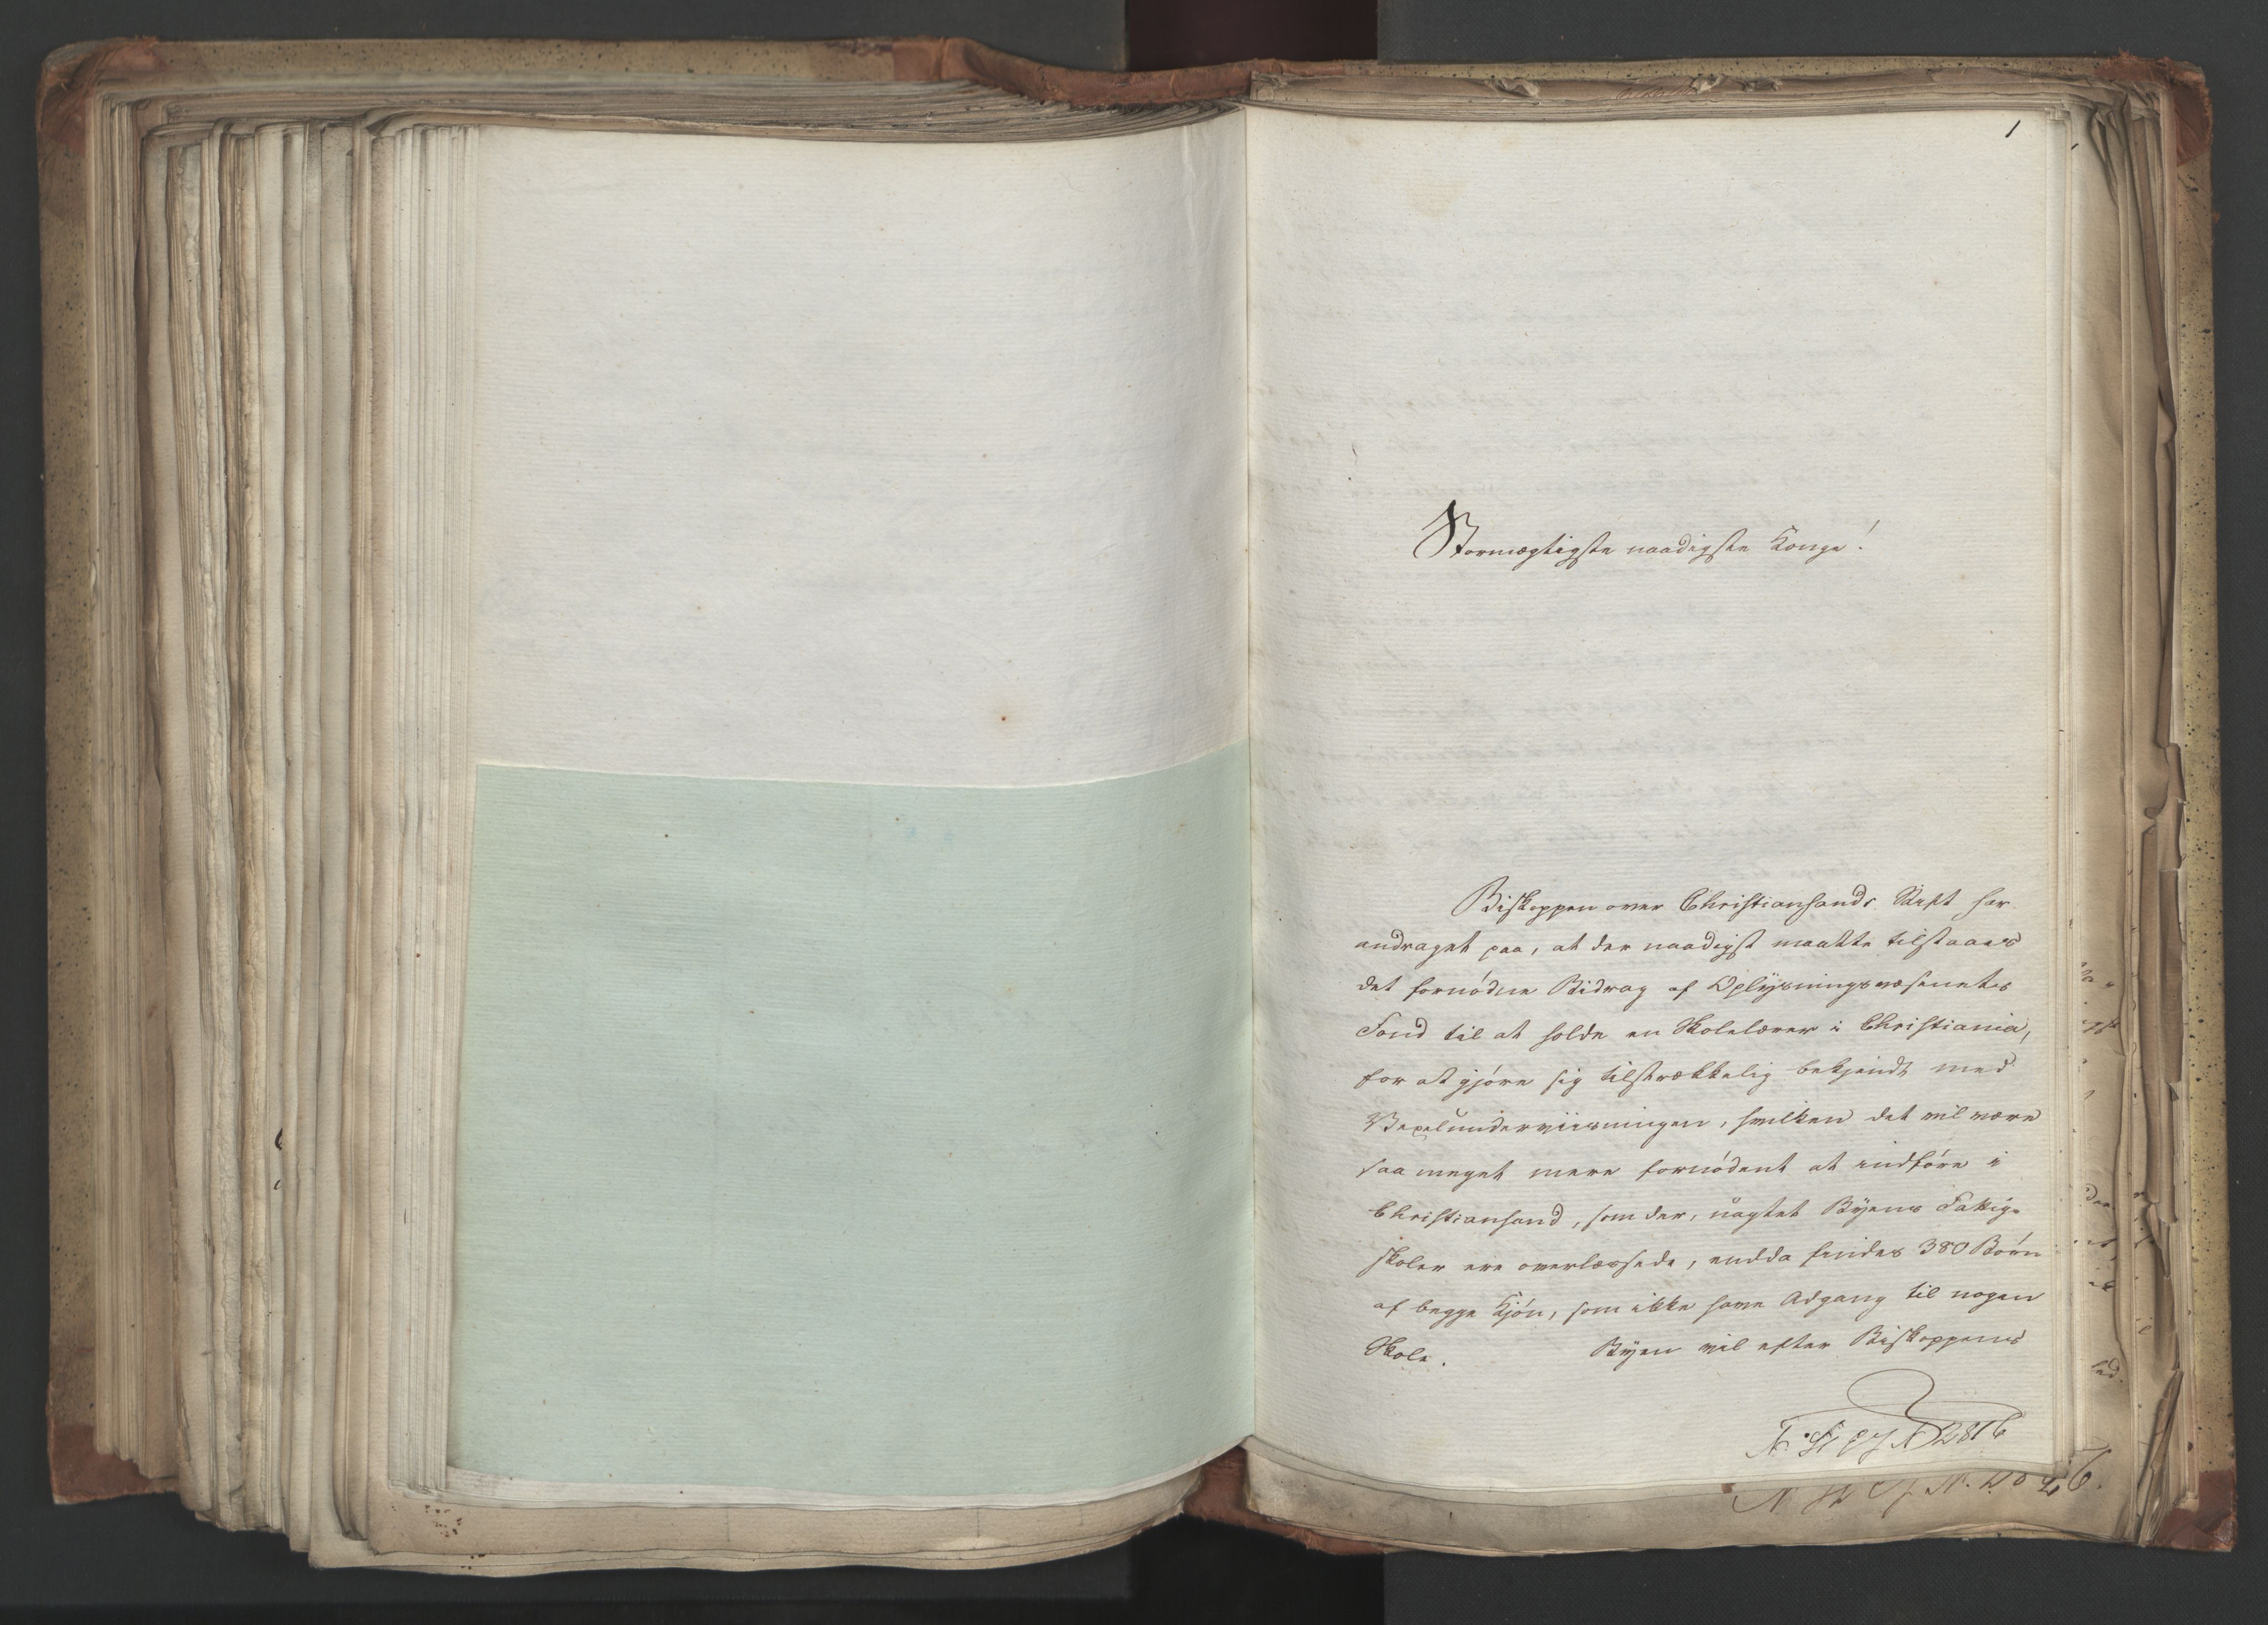 1
Stormægtigste naadigste Konge!
Biskoppen over Christiansands Stift har
andraget paa, at der naadigst maatte tilstaaes
det fornødne Bidrag af Oplysningsvæsenets
Fond til at holde en Skolelærer i Christiania,
for at gjøre sig tilstrækkelig bekjendt med
Vexelunderviisningen, hvilken det vil være
saa meget mere fornødent at indføre i
Christiansand, som der, uagtet Byens Fattig-
skoler ere overlæssede, endda findes 380 Børn
af begge Kjøn, som ikke have Adgang til nogen
Skole. Byen vil efter Biskoppens